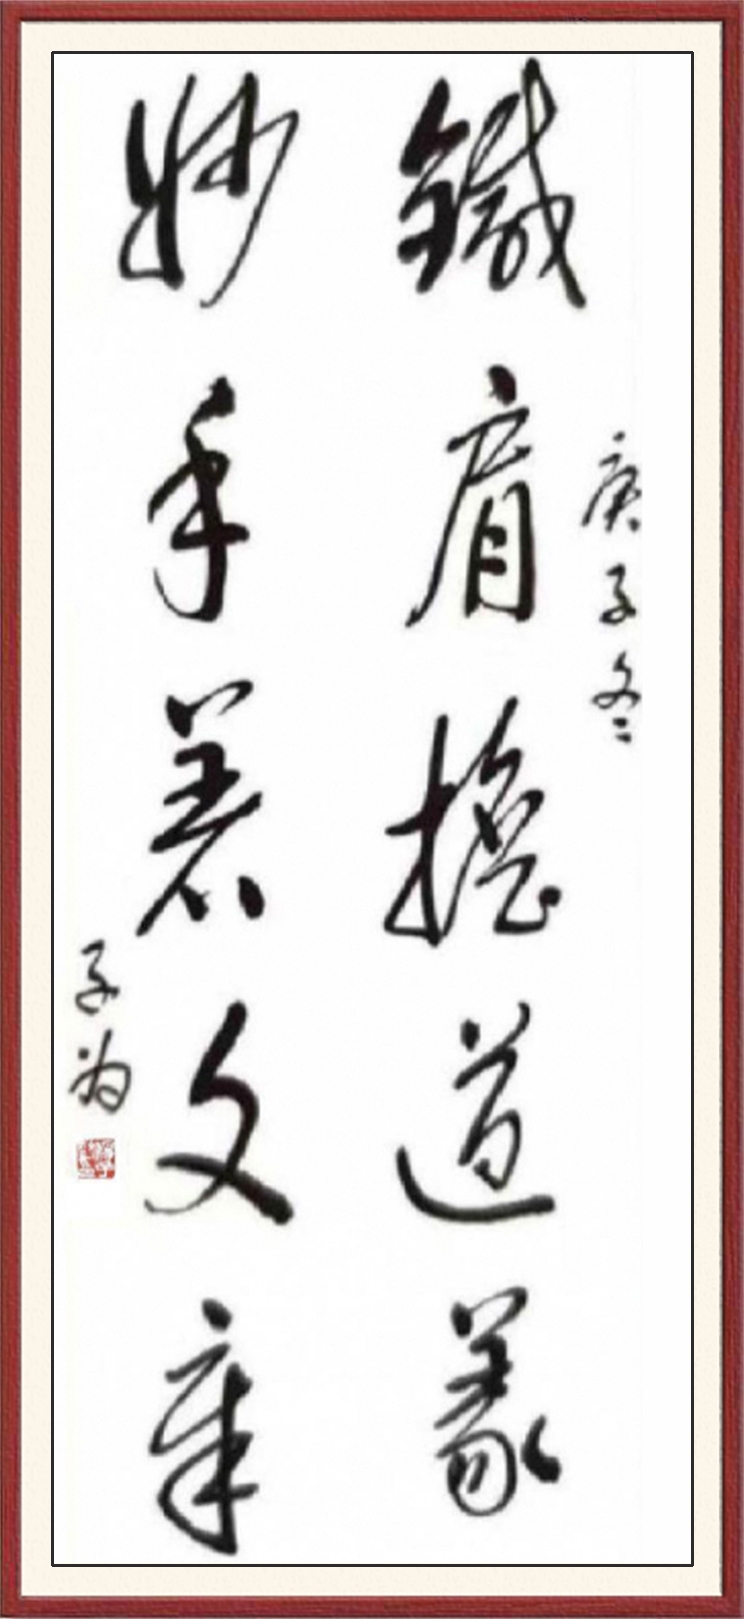 庚子冬
鐵肩擔道義
妙手著文章
子为